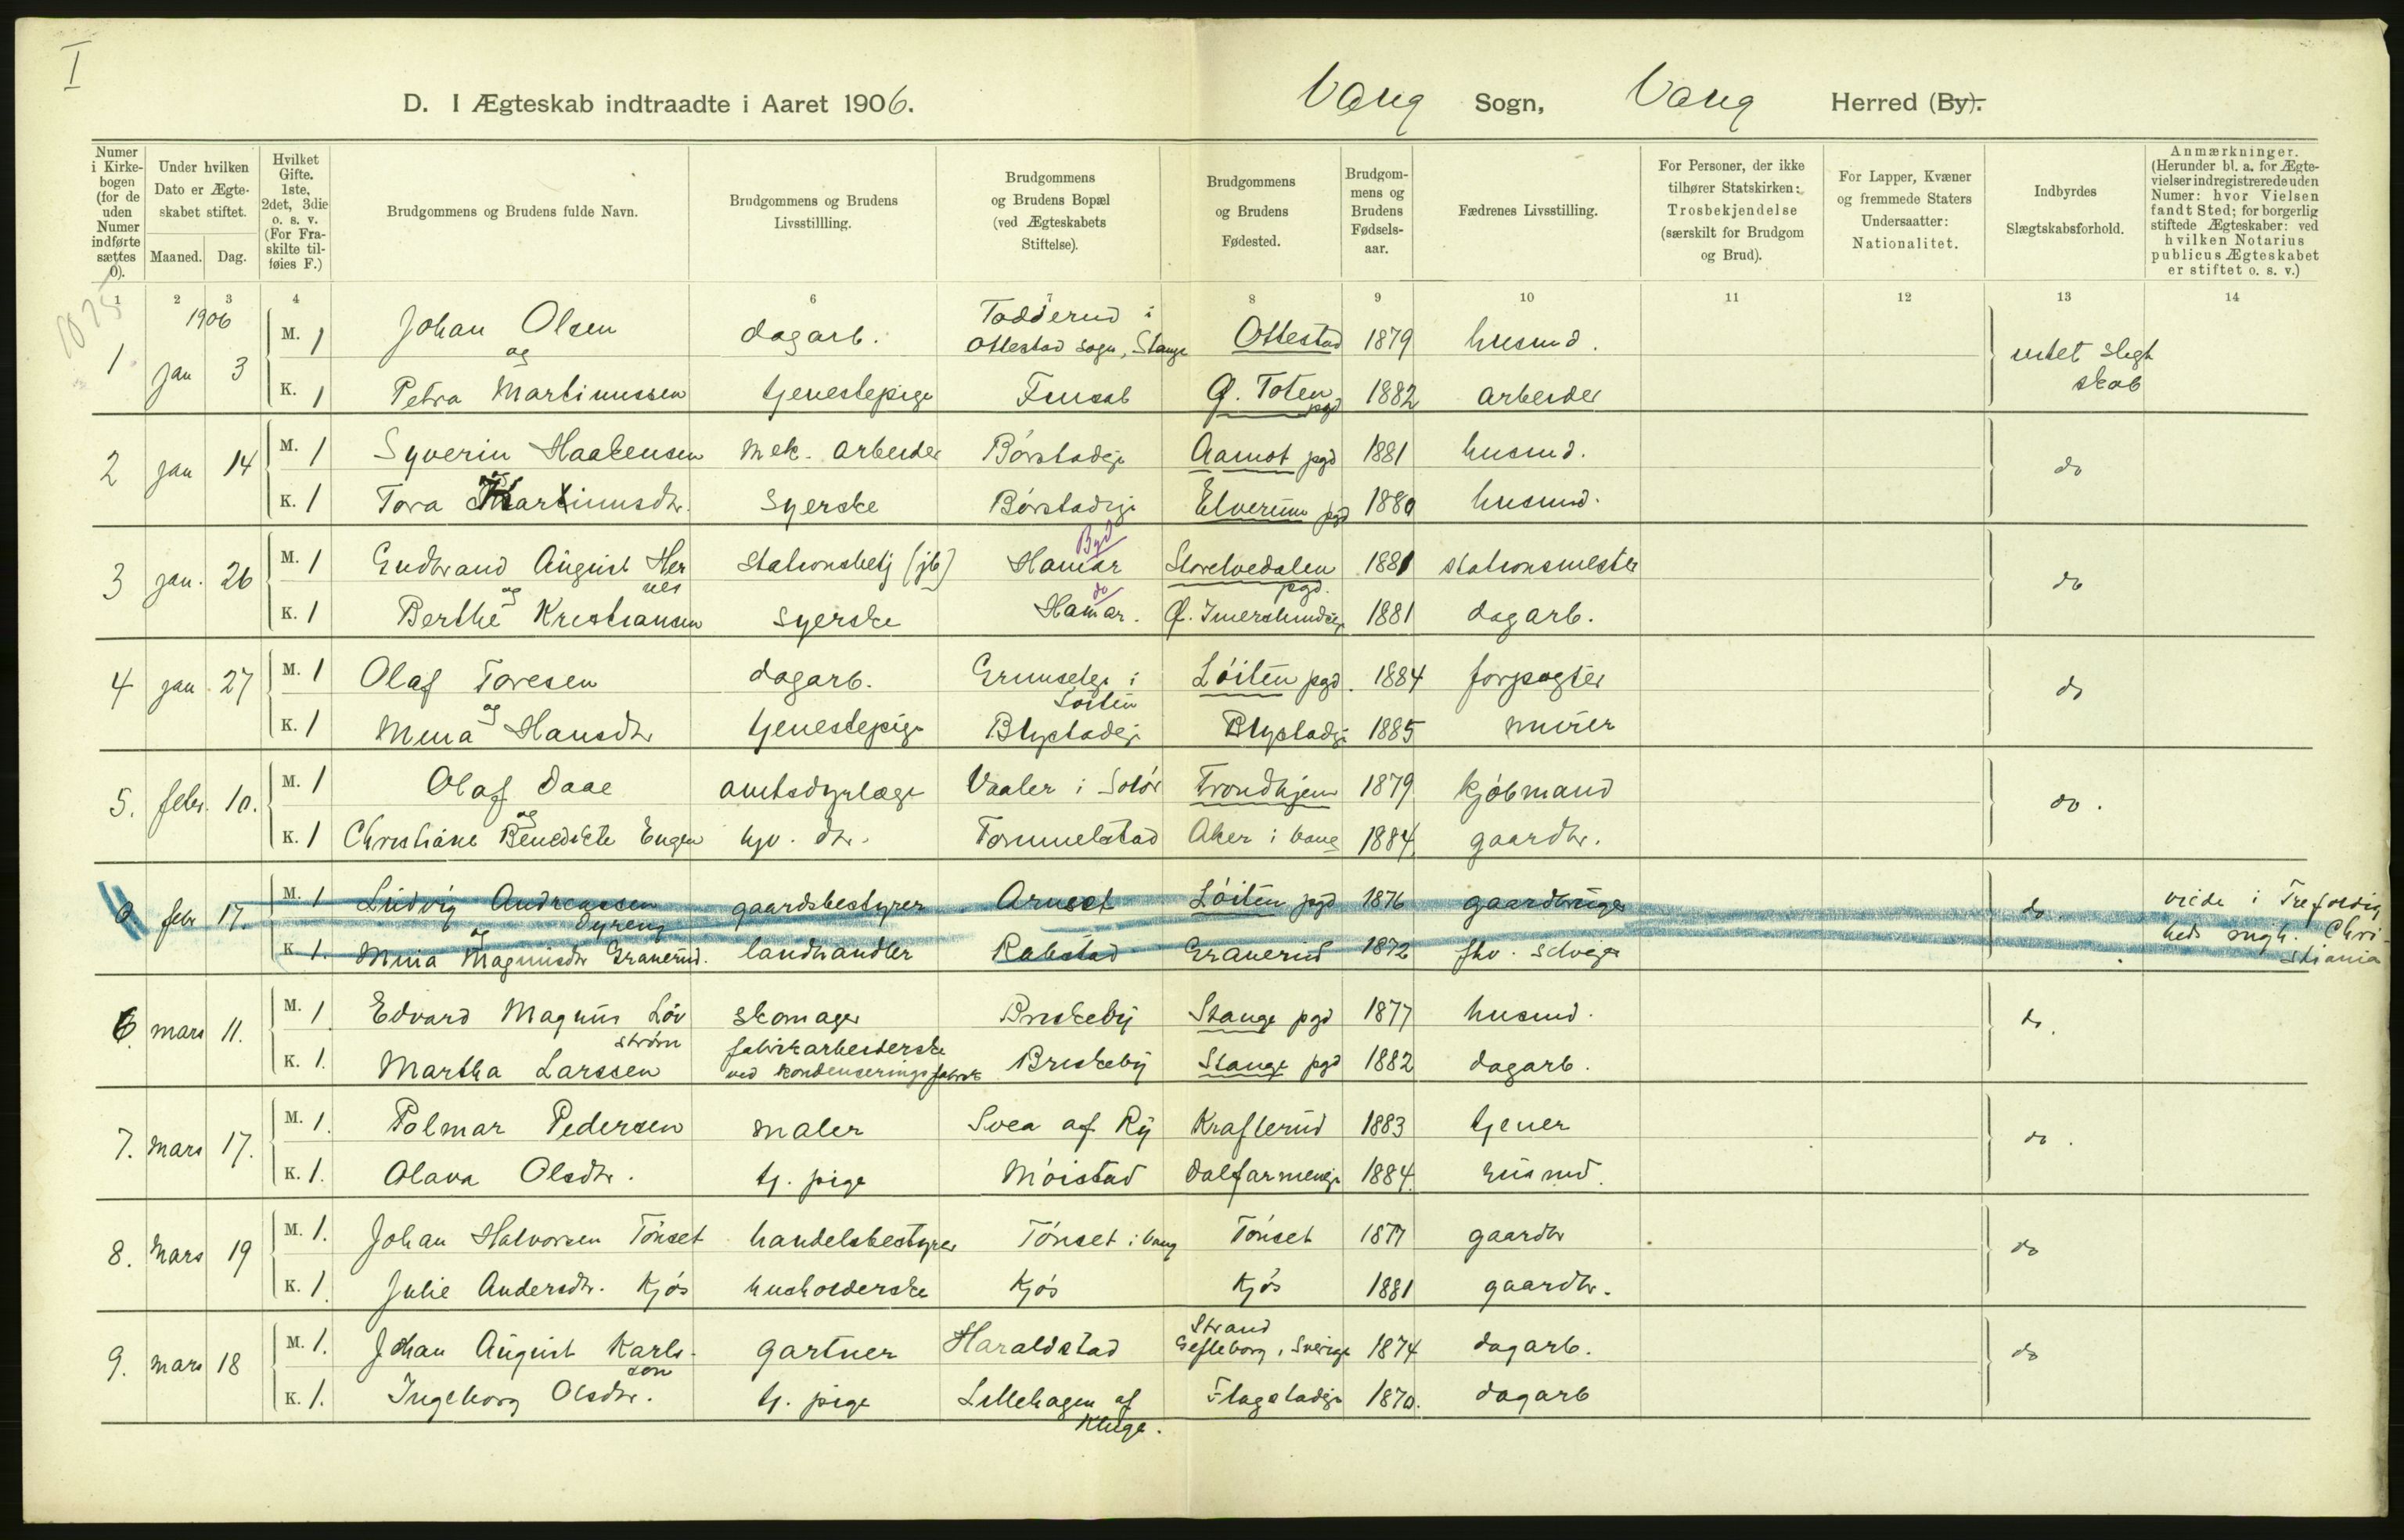 I
D. I Ægteskab indtraadte i Aaret 1906.
Vang Sogn, Vang Herred (By).
Numer i Kirkebogen (for de uden Numer indførte sættes 0).
Under hvilken Dato er Ægteskabet stiftet.
Maaned. Dag.
Hvilket Gifte. 1ste, 2det, 3die o. s. v. (For Fraskilte tilføies F.)
Brudgommens og Brudens fulde Navn.
Brudgommens og Brudens Livsstillling.
Brudgommens og Brudens Bopæl (ved Ægteskabets Stiftelse).
Brudgommens og Brudens Fødested.
Brudgommens og Brudens Fødselsaar.
Fædrenes Livsstilling.
For Personer, der ikke tilhører Statskirken: Trosbekjendelse (særskilt for Brudgom og Brud).
For Lapper, Kvæner og fremmede Staters Undersaatter: Nationalitet.
Indbyrdes Slægtskabsforhold.
Anmærkninger. (Herunder bl. a. for Ægtevielser indregistrerede uden Numer: hvor Vielsen fandt Sted; for borgerlig stiftede Ægteskaber: ved hvilken Notarius publicus Ægteskabet er stiftet o. s. v.)
1 2 3 4 6 7 8 9 10 11 12 13 14
1906
1 jan 3 M. 1 Johan Olsen dagarb. Tadderud i Ottestad sogn, Stange Ottestad 1879 husmd. intet slegtskab
og
K. 1 Petra Martinussen tjenestepige Frusab Ø. Toten pgd 1882 arbeider
2 jan 14 M. 1 Syverin Haakensen mek. arbeider Børstadeje Aamot pgd 1881 husmd. do
og
K. 1 Tora Martinusdtr. syerske Børstadeje Elverum pgd 1880 husmd.
3 jan. 26 M. 1 Gudbrand August Hernes stationsbetj (jb) Hamar Byd Storelvedalen pgd. 1881 stationsmester do
og
K. 1 Berthe Kristiansen syerske Hamar. do Ø. 1881 dagarb.
4 jan 27 M. 1 Olaf Toresen dagarb. Grunseteje i Løiten Løiten pgd. 1884 forpagter do
og
K. 1 Mina Hansdtr tjenestepige Blystadeje Blystadeje 1885 murer
5. febr. 10. M. 1 Olaf Daae amtsdyrlæge Vaaler i Solør Trondhjem 1879 kjøbmand do.
og
K. 1 Christiane Benedikte Engen hjv. dtr. Tommelstad Aker i Vang 1884 gaardbr.
febr 17. M. 1 Ludvig Andreassen Dyreng gaardsbestyrer Arnset Løiten pgd 1876 gaardbruger do viede i Trefoldigheds mgh. Christiania
og
K. 1. Mina Magnusdtr Granerud. landhandler Rabstad Granerud 1872 fhv. selveier
6. mars 11. M. 1 Edvard Magnus Løvstrøm skomager Briskeby Stange pgd 1877 husmd. do.
K. 1. Martha Larssen fabrikarbeiderske ved kondenseringsfabrik Briskeby Stange pgd 1882 dagarb.
7. mars 17. M. 1. Palmar Pedersen maler Svea af Ry Kraflerud 1883 tjener do.
K. 1. Olava Olsdtr. tj. pige Møistad Dalfarmeneje 1884. husmd.
8. mars 19 M. 1. Johan Halvorsen Tønset handelsbestyrer Tønset i Vang Tønset 1877 gaardbr do
K. 1. Julie Andersdtr. Kjøs husholderske Kjøs Kjøs 1881 gaardbr.
9. mars 18 M. 1. Johan August Karlsson gartner Haraldstad Strand Gefleborg, Sverige 1874 dagarb. do
K. 1. Ingeborg Olsdtr. tj. pige Lillehagen af Kluge. Flagstadeje 1870. dagarb